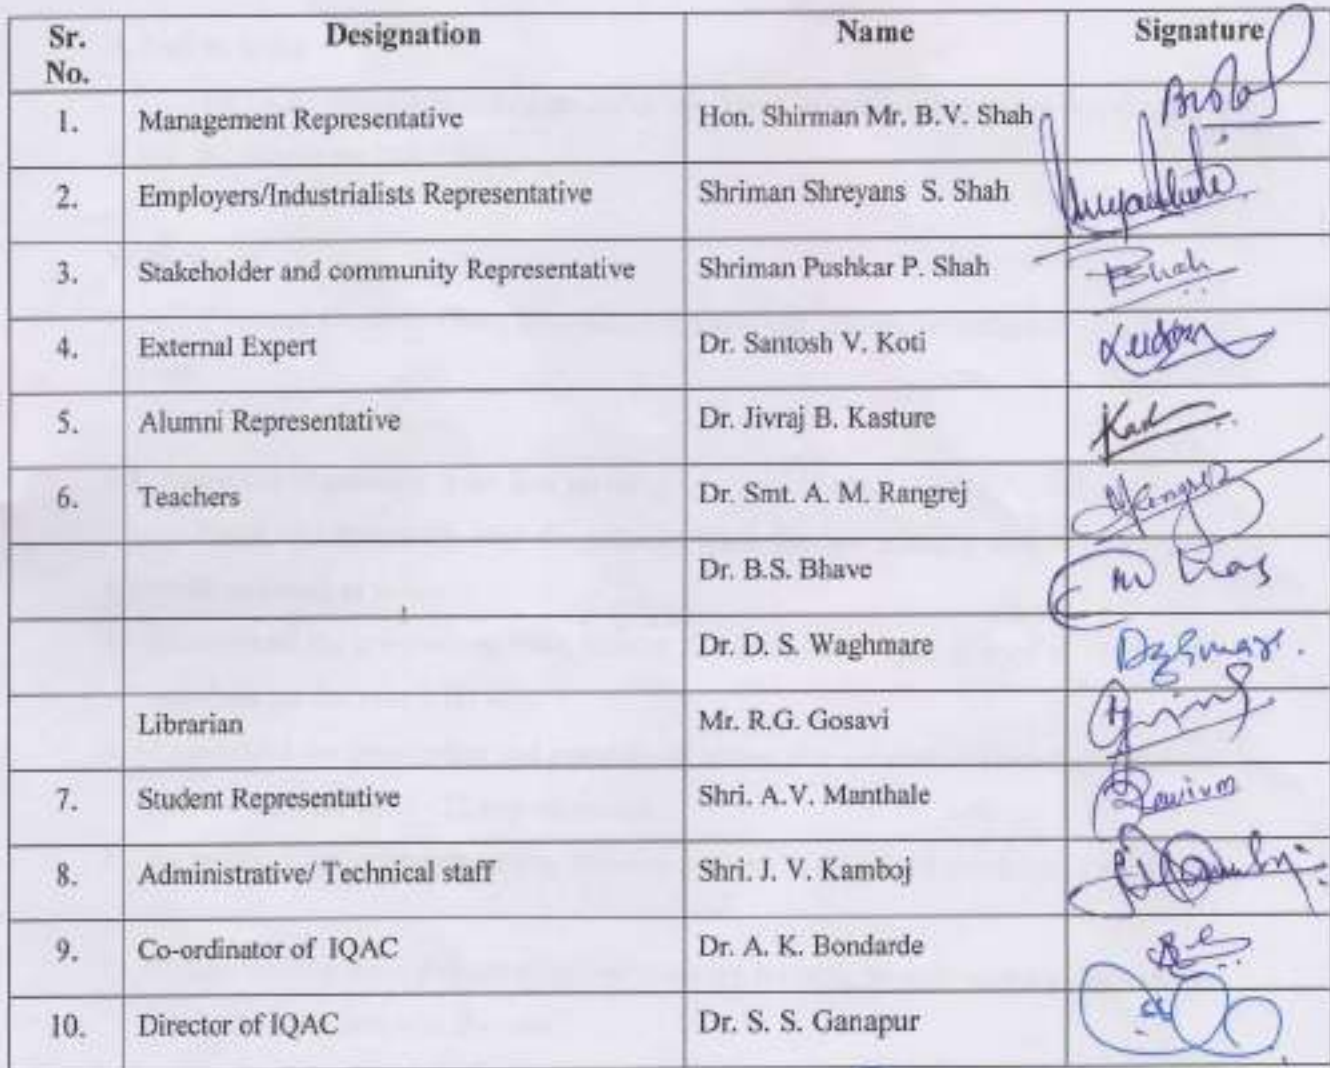 Sr. No. Designation Name Signature
1. Management Representative Hon. Shirman Mr. B.V. Shah
2. Employers/Industrialists Representative Shriman Shreyans S. Shah
3. Stakeholder and community Representative Shriman Pushkar P. Shah
4. External Expert Dr. Santosh V. Koti
5. Alumni Representative Dr. Jivraj B. Kasture
6. Teachers Dr. Smt. A. M. Rangrej
Dr. B.S. Bhave
Dr. D. S. Waghmare
Librarian Mr. R.G. Gosavi
7. Student Representative Shri. A.V. Manthale
8. Administrative/ Technical staff Shri. J. V. Kamboj
9. Co-ordinator of IQAC Dr. A. K. Bondarde
10. Director of IQAC Dr. S. S. Ganapur